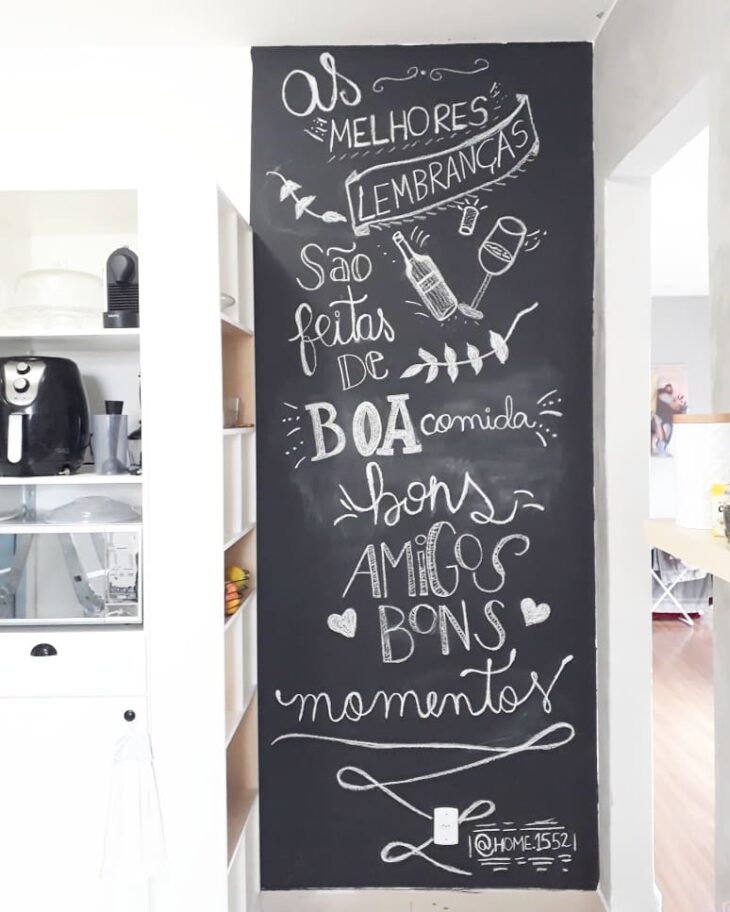 as
MELHORES
LEMBRANÇAS
São
feitas
DE
BOA comida
bons
AMIGOS
BONS
momentos
@HOME.1552